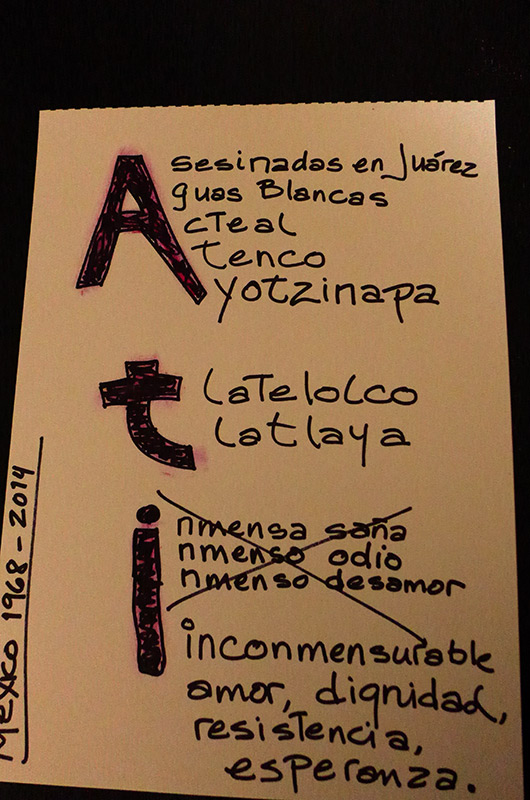 A
sesinadas en Juárez
guas Blancas
cTeal
tenco
yotzinapa
t
laTelolco
latlaya
i
nmensa saña
nmenso odio
nmenso desamor
inconmensurable
amor, dignidad,
resistencia,
esperanza.
MéxICO 1968-2014